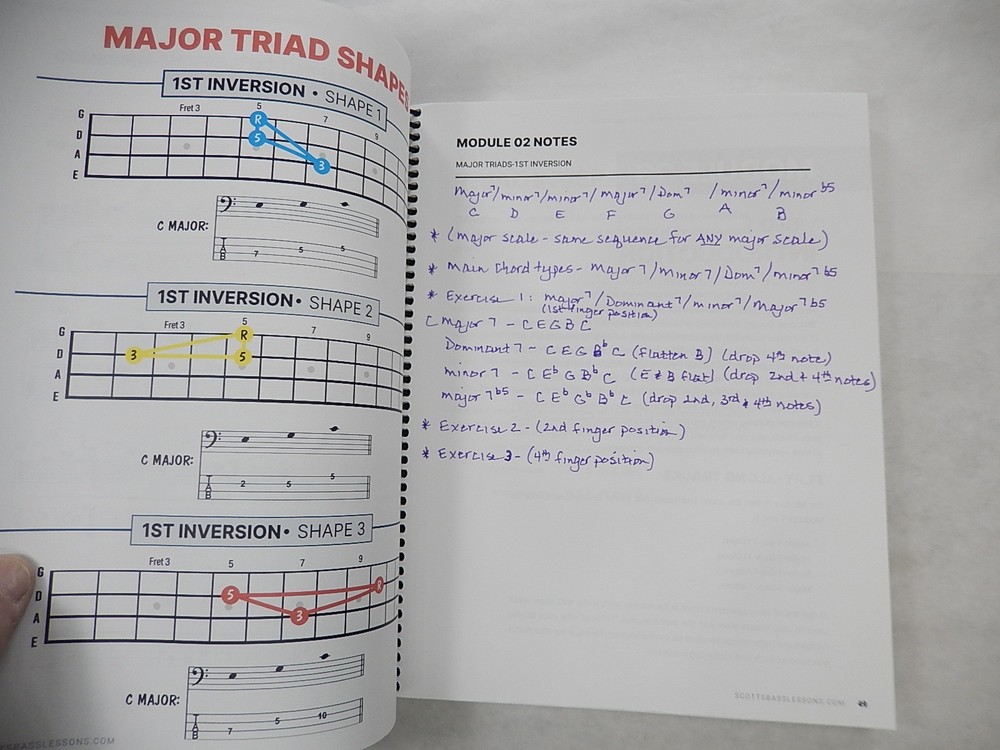 MAJOR TRIAD SHAPES
1ST INVERSION • SHAPE 1
Fret 3 5 7 9
G
D
A
E
R
5
3
C MAJOR:
T
A
B
7 5 5
1ST INVERSION • SHAPE 2
Fret 3 5 7 9
G
D
A
E
R
3 5
C MAJOR:
T
A
B
2 5 5
1ST INVERSION • SHAPE 3
Fret 3 5 7 9
G
D
A
E
R
5
3
C MAJOR:
T
A
B
7 5 10
SBASSLESSONS.COM
MODULE 02 NOTES
MAJOR TRIADS-1ST INVERSION
Major⁷/minor⁷/minor⁷/major⁷/Dom⁷ /minor⁷/minor b5
C D E F G A B
* (Major scale - same sequence for ANY major scale)
* main Chord types - Major 7/minor 7/Dom⁷/minor⁷ b5
* Exercise 1: major⁷/Dominant⁷/minor⁷/Major⁷ b5
(1st finger position)
C Major 7 - C E G B C
Dominant 7 - C E G Bb C (flatten B) (drop 4th note)
minor 7 - C Eb G Bb C (E & B flat) (drop 2nd + 4th notes)
major 7 b5 - C Eb Gb Bb C (drop 2nd, 3rd & 4th notes)
* Exercise 2 - (2nd finger position)
* Exercise 3 - (4th finger position)
SCOTTSBASSLESSONS.COM